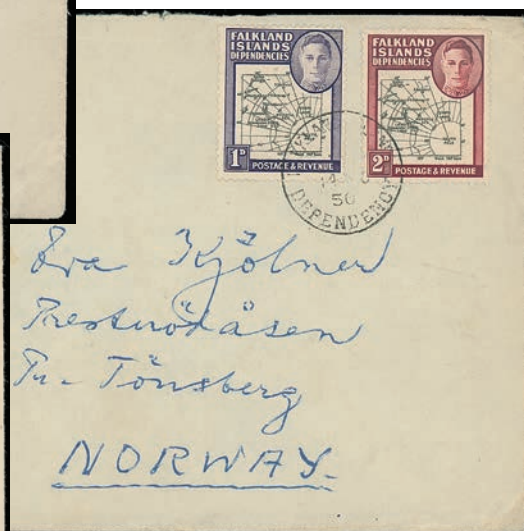 FALKLAND
ISLANDS
DEPENDENCIES
1D
POSTAGE & REVENUE
FALKLAND
ISLANDS
DEPENDENCIES
2D
POSTAGE & REVENUE
50
DEPENDENCY
Eva Kjölner
Presterödåsen
Pr. Tönsberg
NORWAY